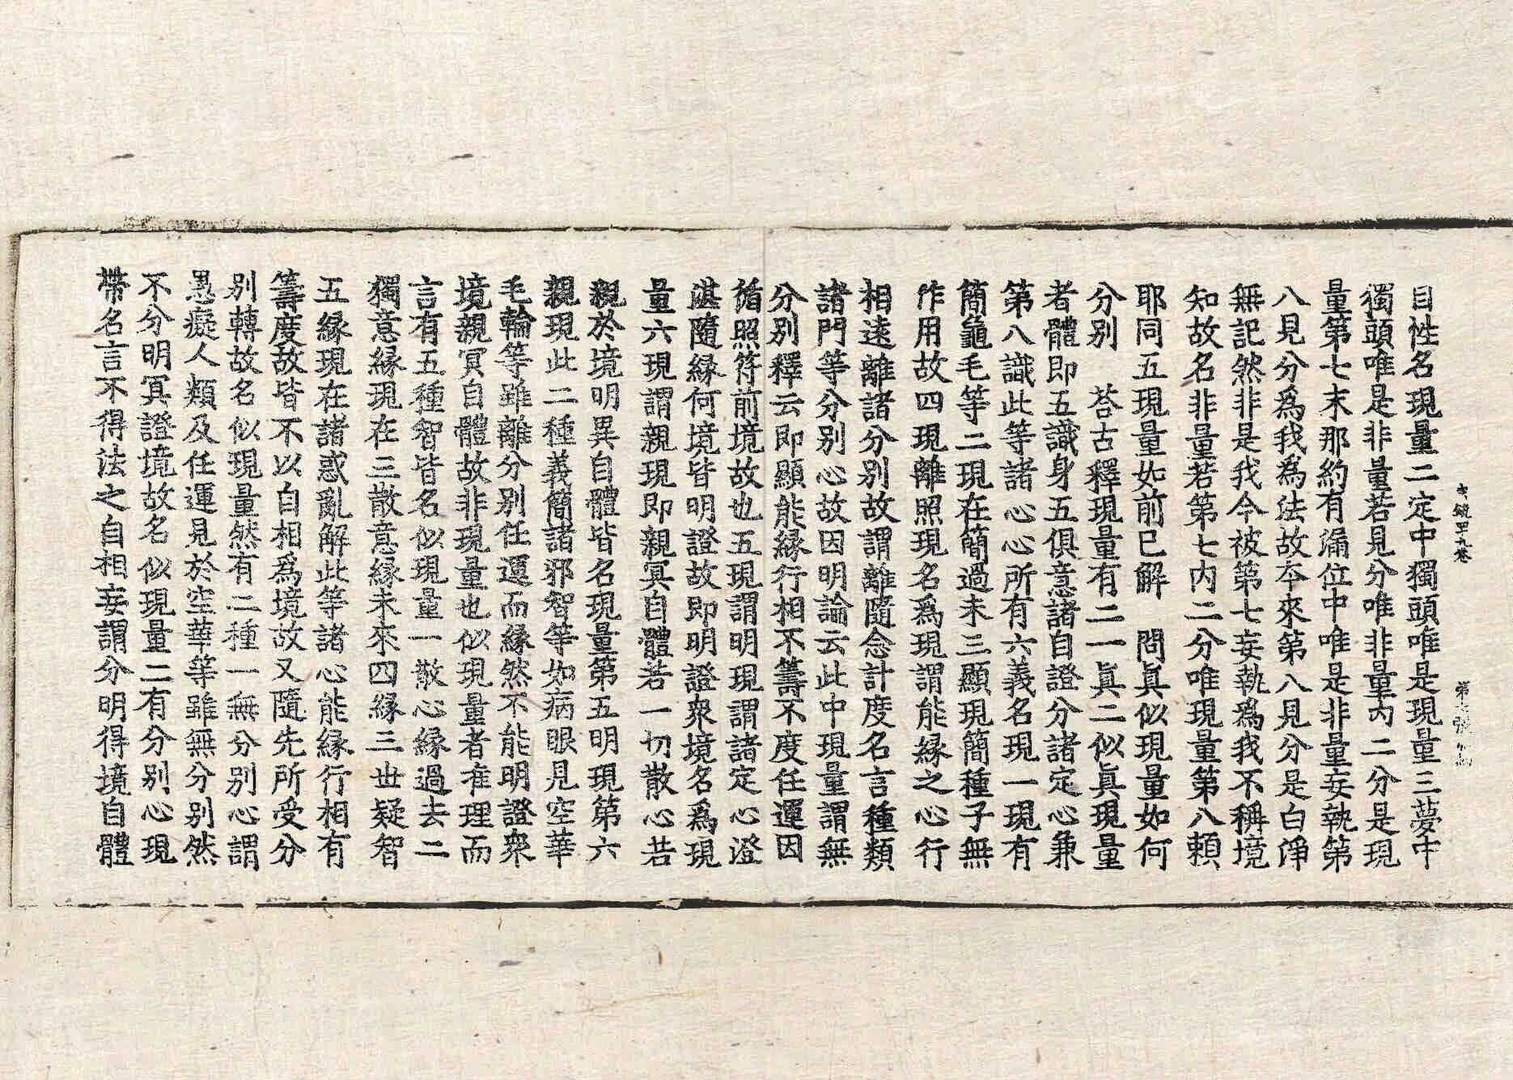 自性名現量二定中獨頭唯是現量三夢中
獨頭唯是非量若見分唯非量内二分是現
量第七末那約有漏位中唯是非量妄執第
八見分爲我爲法故本來第八見分是白淨
無記然非是我今被第七妄執爲我不稱境
知故名非量若第七内二分唯現量第八頼
耶同五現量如前已解　問真似現量如何
分别　荅古釋現量有二一真二似真現量
者體即五識身五俱意諸自證分諸定心兼
第八識此等諸心心所有六義名現一現有
簡龜毛等二現在簡過未三顯現簡種子無
作用故四現離照現名爲現謂能緣之心行
相遠離諸分别故謂離隨念計度名言種類
諸門等分别心故因明論云此中現量謂無
分别釋云即顯能緣行相不籌不度任運因
循照符前境故也五現謂明現謂諸定心澄
湛隨緣何境皆明證故即明證衆境名爲現
量六現謂親現即親冥自體若一切散心若
親於境明異自體皆名現量第五明現第六
親現此二種義簡諸邪智等如病眼見空華
毛輪等雖離分别任運而緣然不能明證衆
境親冥自體故非現量也似現量者准理而
言有五種智皆名似現量一散心緣過去二
獨意緣現在三散意緣未來四緣三世疑智
五緣現在諸惑亂解此等諸心能緣行相有
籌度故皆不以自相爲境故又隨先所受分
别轉故名似現量然有二種一無分别心謂
愚癡人類及任運見於空華等雖無分别然
不分明冥證境故名似現量二有分别心現
帶名言不得法之自相妄謂分明得境自體